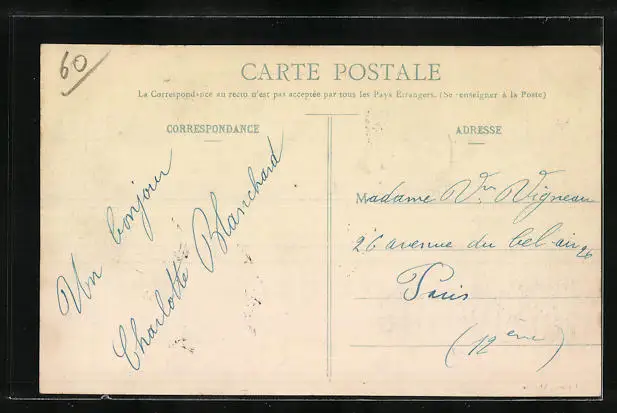 60
CARTE POSTALE
La Correspondance au recto n'est pas acceptée par tous les Pays Etrangers. (Se renseigner à la Poste)
CORRESPONDANCE
ADRESSE
Un bonjour
Charlotte Blanchard
Madame Vve Vigneau
26 avenue du bel-air 26
Paris
(12eme)